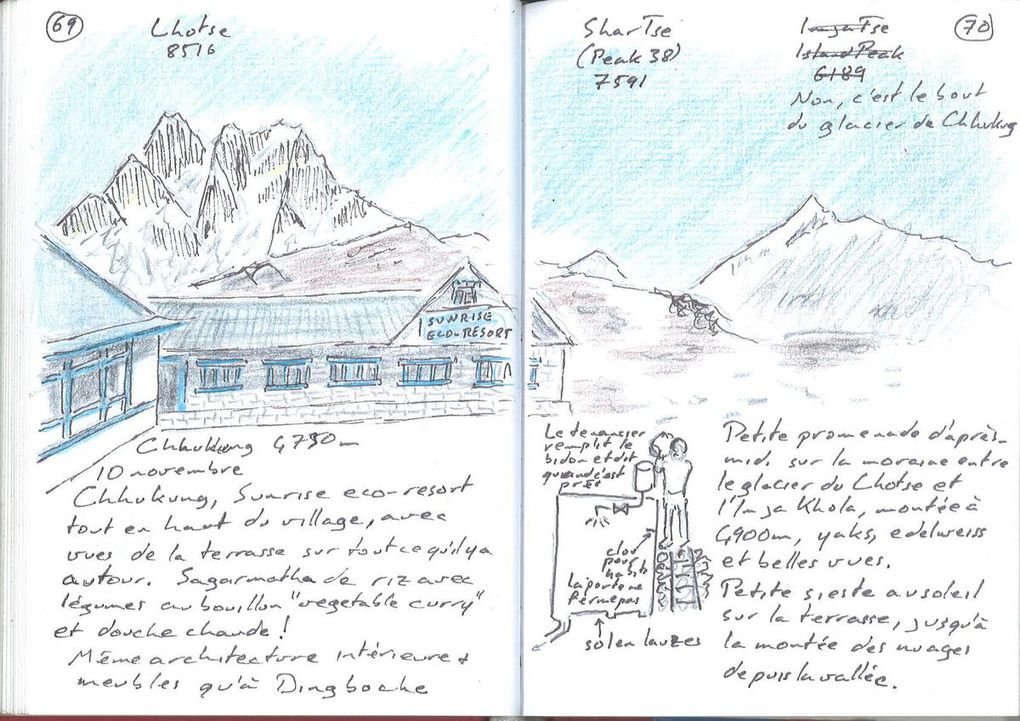 69
Lhotse
8516
SUNRISE
ECO-RESORT
Chhukung 4730m
10 novembre
Chhukung, Sunrise eco-resort
tout en haut du village, avec
vues de la terrasse sur tout ce qu'il y a
autour. Sagarmatha de riz avec
légumes au bouillon "vegetable curry"
et douche chaude !
Même architecture intérieure &
meubles qu'à Dingboche
SharTse
(Peak 38)
7591
ImjaTse
Island Peak
6189
70
Non, c'est le bout
du glacier de Chhukung
Le tenancier
remplit le
bidon et dit
quand c'est
prêt
clou
pour
habits
la porte ne
ferme pas
sol en lauzes
Petite promenade d'après-
midi sur la moraine entre
le glacier du Lhotse et
l'Imja Khola, montée à
4900m, yaks, edelweiss
et belles vues.
Petite sieste au soleil
sur la terrasse, jusqu'à
la montée des nuages
depuis la vallée.